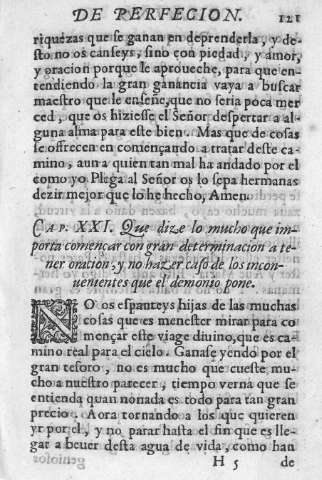 DE PERFECION. 121
riquezas que se ganan en deprenderla, y de-
sto no os canseys, sino con piedad, y amor,
y oracion porque le aproueche, para que en-
tendiendo la gran ganancia vaya a buscar
maestro que le enseñe, que no seria poca mer
ced, que os hiziesse el Señor despertar a al-
guna alma para este bien. Mas que de cosas
se offrecen en començando a tratar deste ca-
mino, aun a quien tan mal ha andado por el
como yo Plega al Señor os lo sepa hermanas
dezir mejor que lo he hecho, Amen.
CAP. XXI. Que dize lo mucho que im-
porta comencar con gran determinacion a te-
ner oracion, y no hazer caso de los incon-
uenientes que el demonio pone.
NO os espanteys hijas de las muchas
cosas que es menester mirar para co
mençar este viage diuino, que es ca-
mino real para el cielo. Ganase yendo por el
gran tesoro, no es mucho que cueste mu-
cho a nuestro parecer, tiempo verna que se
entienda quan nonada es todo para tan gran
precio. Aora tornando a los que quieren
yr por el, y no parar hasta el fin que es lle-
gar a beuer desta agua de vida, como han
H 5 de